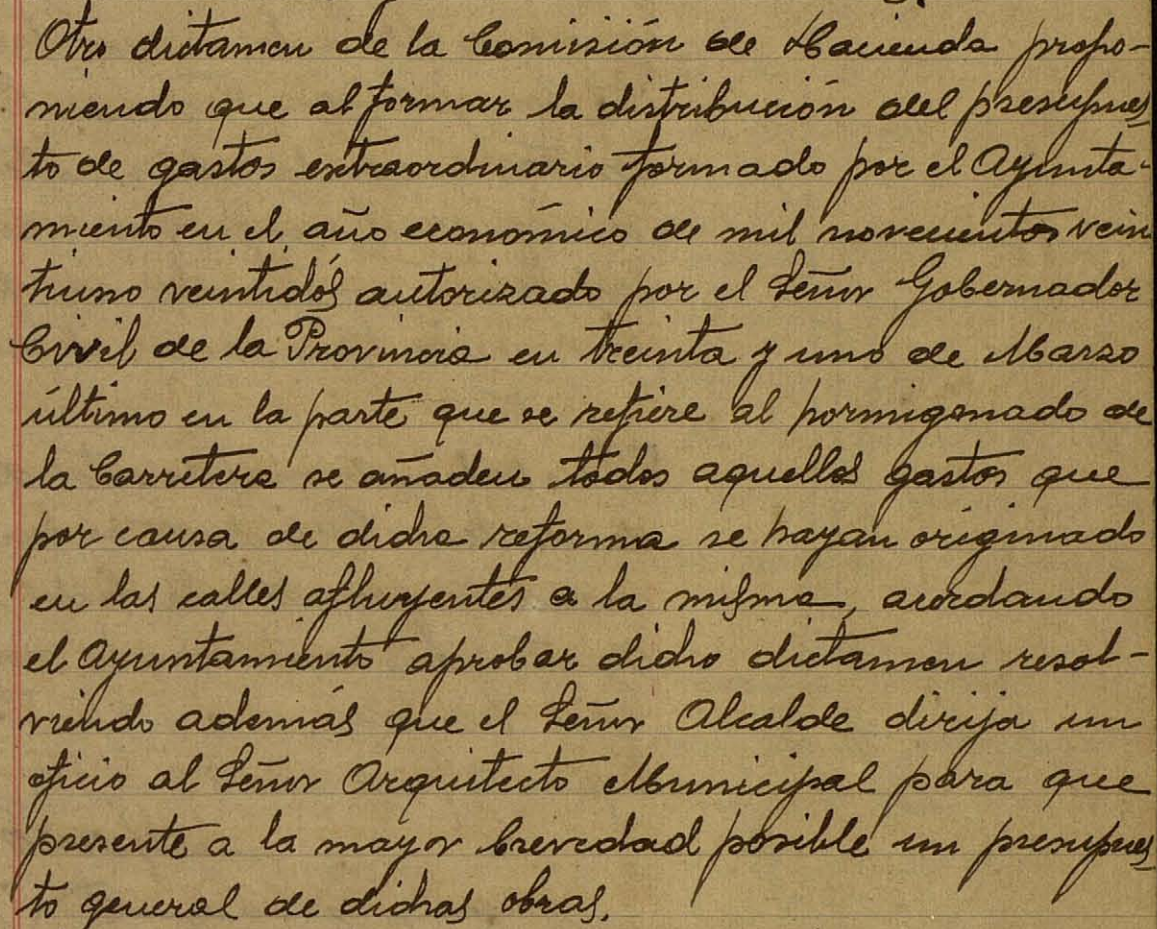 Otro dictamen de la Comisión de Hacienda propo-
niendo que al formar la distribución del presupues
to de gastos extraordinario formado por el Ayunta-
miento en el año económico de mil novecientos vein
tiuno veintidós autorizado por el Señor Gobernador
Civil de la Provincia en treinta y uno de Marzo
último en la parte que se refiere al hormigonado de
la Carretera se añaden todos aquellos gastos que
por causa de dicha reforma se hayan originado
en las calles afluyentes a la misma, acordando
el Ayuntamiento aprobar dicho dictamen resol-
viendo además que el Señor Alcalde dirija un
oficio al Señor Arquitecto Municipal para que
presente a la mayor brevedad posible un presupues
to general de dichas obras.